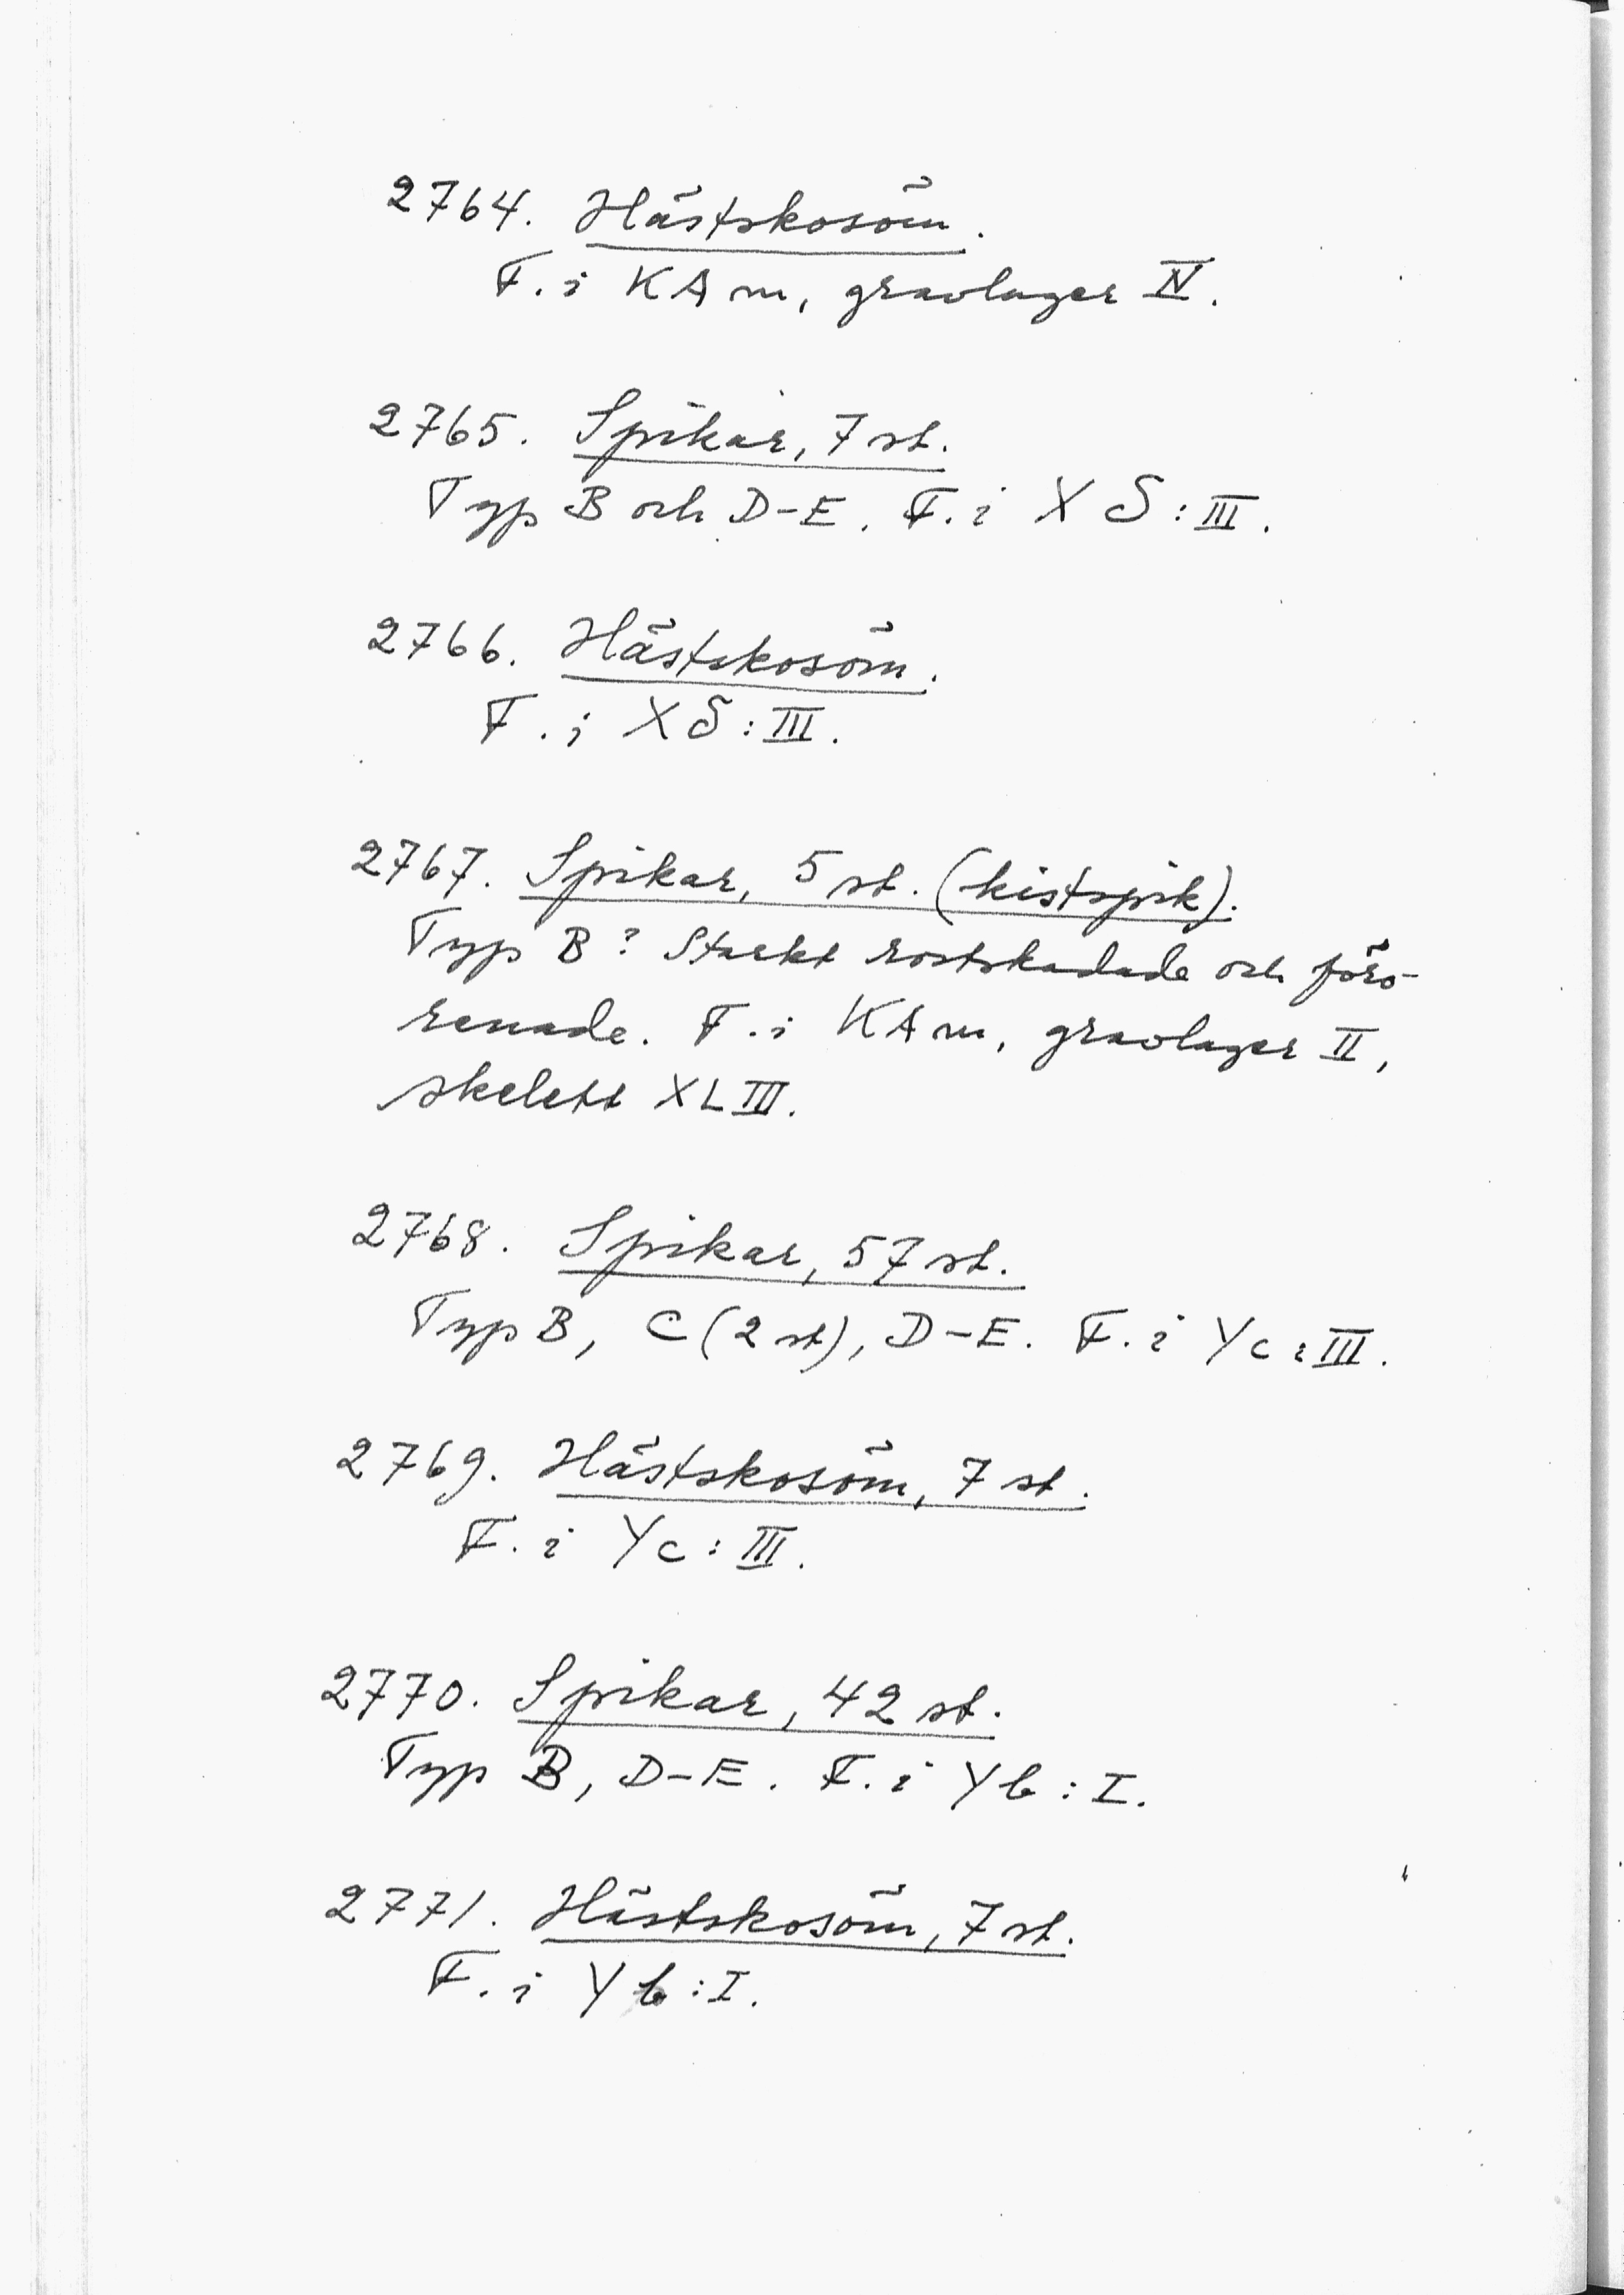 2764. Hästskosöm.
F. i KA m, gravlager IV.
2765. Spikar, 7 st.
Typ B och D-E. F. i X S:III.
2766. Hästskosöm.
F. i XS:III.
2767. Spikar, 5 st. (kistspik).
Typ B? Starkt rostskadade och föro-
renade. F. i KA m, gravlager II,
skelett XLIII.
2768. Spikar, 57 st.
Typ B, C (2 st), D-E. F. i Yc:III.
2769. Hästskosöm, 7 st.
F. i Yc:III.
2770. Spikar, 42 st.
Typ B, D-E. F. i Yb:I.
2771. Hästskosöm, 7 st.
F. i Yb:I.